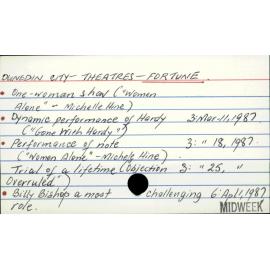 DUNEDIN CITY - THEATRES - FORTUNE.
• One-woman show ("Women
Alone" - Michelle Hine)
• Dynamic performance of Hardy 3: Mar. 11, 1987
("Gone With Hardy")
• Performance of note 3: " 18, 1987.
("Women Alone" - Michele Hine)
Trial of a lifetime (Objection 3: " 25, "
Overruled")
• Billy Bishop a most challenging 6: Apl 1, 1987
role. MIDWEEK